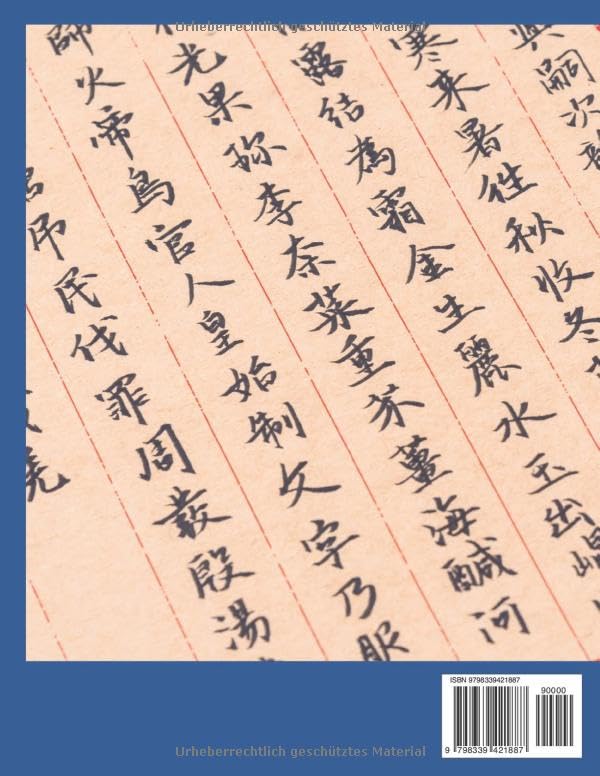 Urheberrechtlich geschütztes Material
嗣次
寒来暑往秋收冬
露結為霜金生麗水玉出崐
光果珎李柰菜重芥薑海鹹河
師火帝鳥官人皇始制文字乃服
弔民伐罪周發殷湯
羌
ISBN 9798339421887
90000
9 798339 421887
Urheberrechtlich geschütztes Material